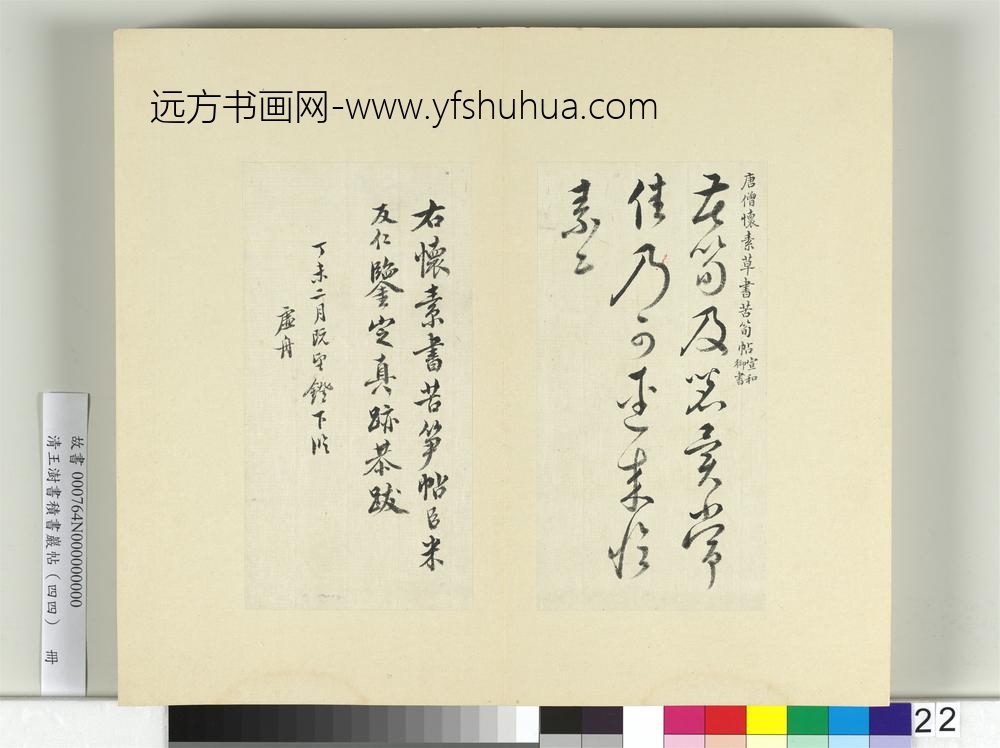 远方书画网-www.yfshuhua.com
唐僧懷素草書苦筍帖宣和御書
苦筍及茗異常
佳乃可逕来懷
素上
右懷素書苦笋帖臣米
友仁鑒定真跡恭跋
丁未二月既望鐙下臨
虛舟
故書 000764N000000000
清王澍書積書巖帖(四四) 冊
22